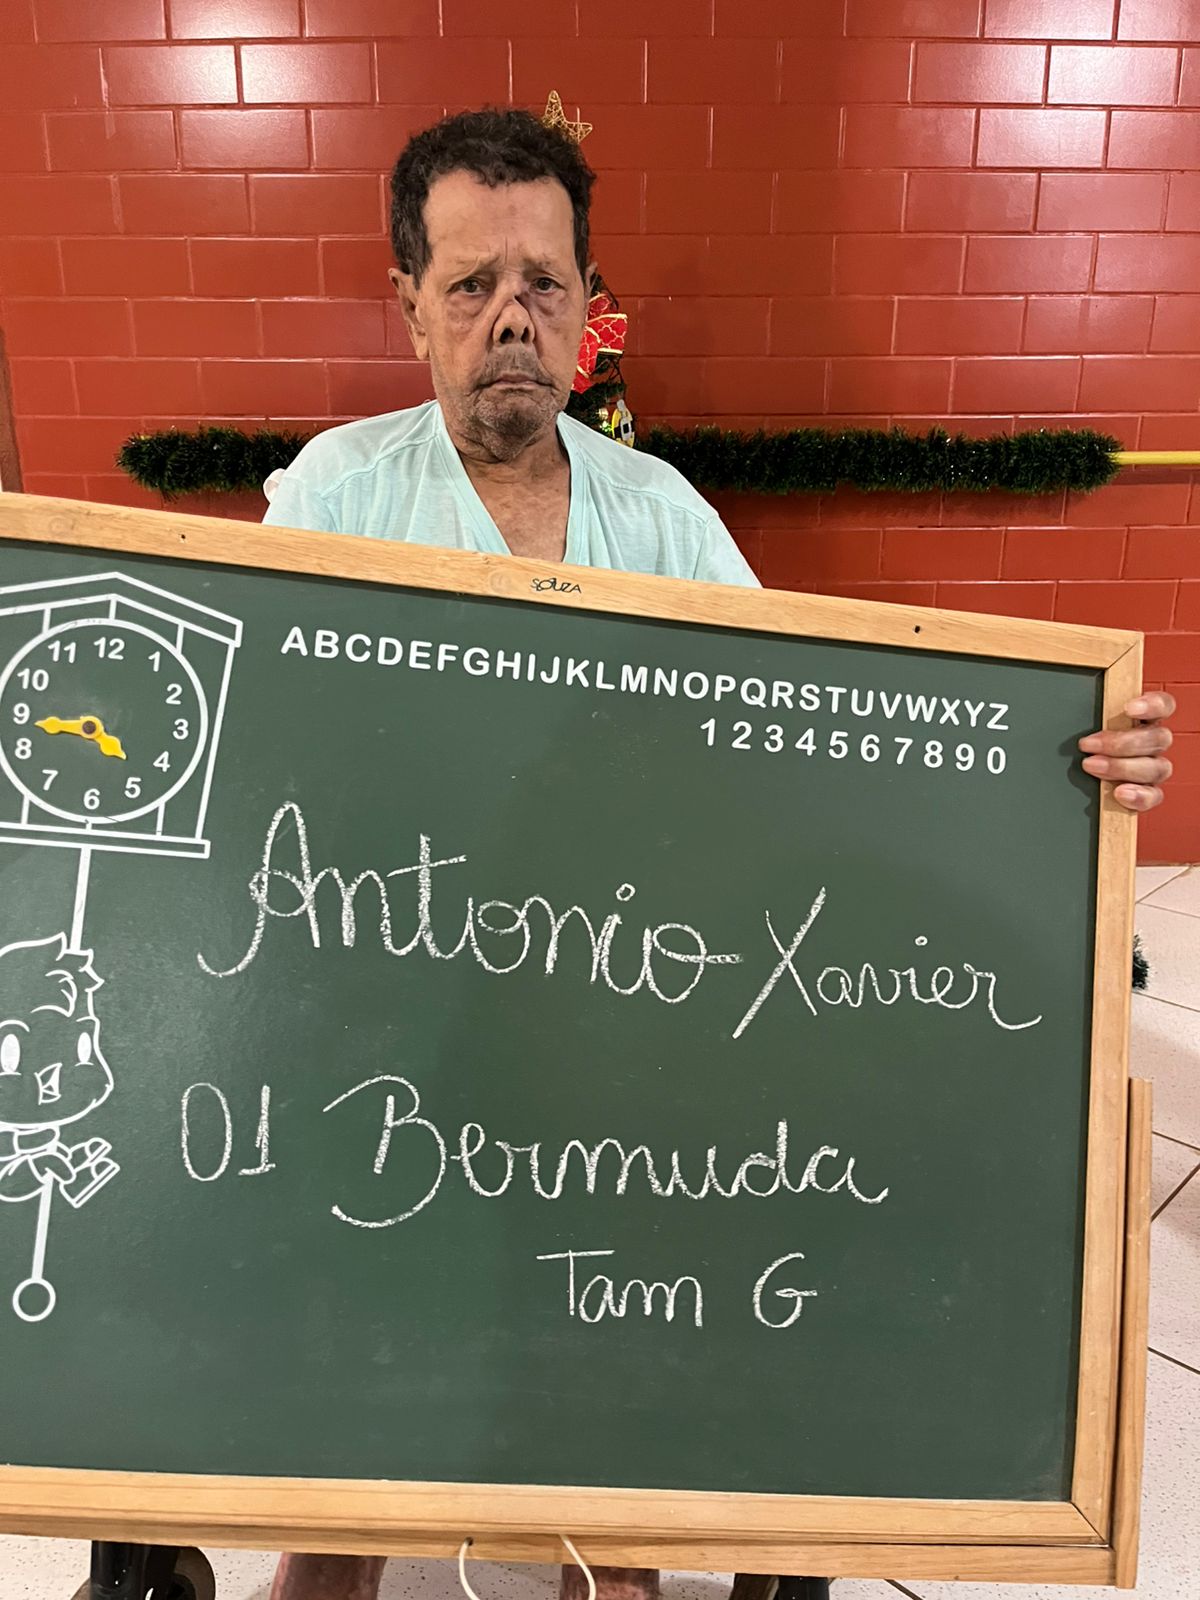 SOUZA
ABCDEFGHIJKLMNOPQRSTUVWXYZ
1234567890
11 12 1
10 2
9 3
8 4
7 6 5
Antonio Xavier
01 Bermuda
Tam G